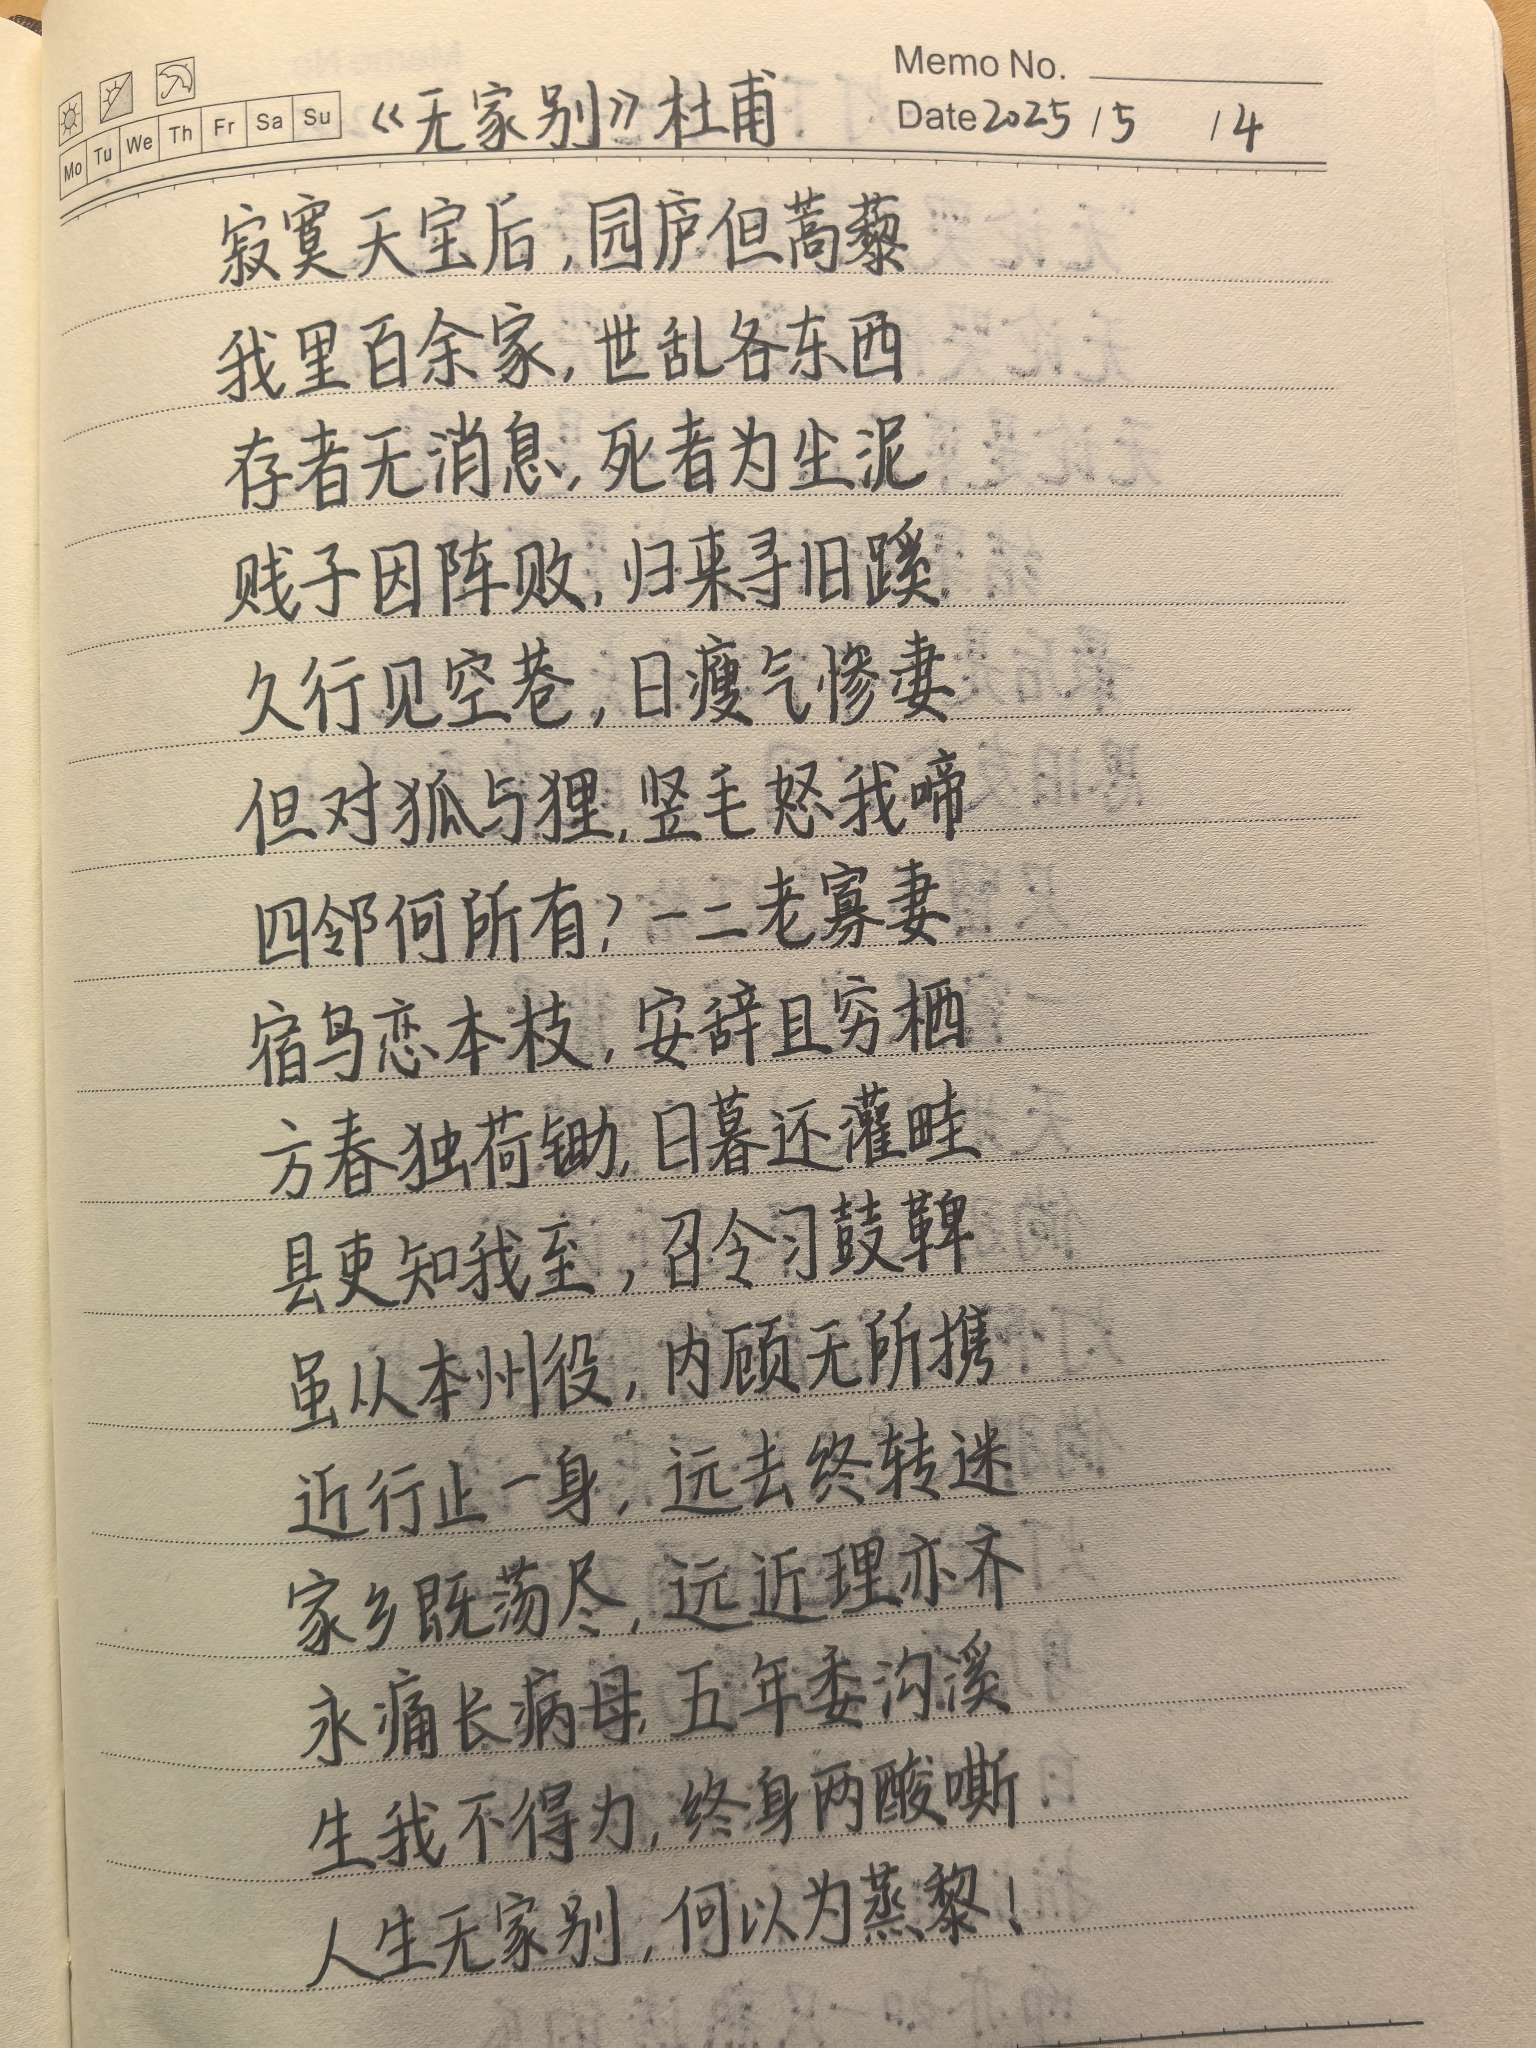 Memo No.
Mo Tu We Th Fr Sa Su
《无家别》杜甫
Date 2025/5/4
寂寞天宝后,园庐但蒿藜
我里百余家,世乱各东西
存者无消息,死者为尘泥
贱子因阵败,归来寻旧蹊.
久行见空巷,日瘦气惨妻
但对狐与狸,竖毛怒我啼
四邻何所有?一二老寡妻
宿鸟恋本枝,安辞且穷栖
方春独荷锄,日暮还灌畦
县吏知我至,召令习鼓鞞
虽从本州役,内顾无所携
近行止一身,远去终转迷
家乡既荡尽,远近理亦齐
永痛长病母,五年委沟溪
生我不得力,终身两酸嘶
人生无家别,何以为蒸黎!